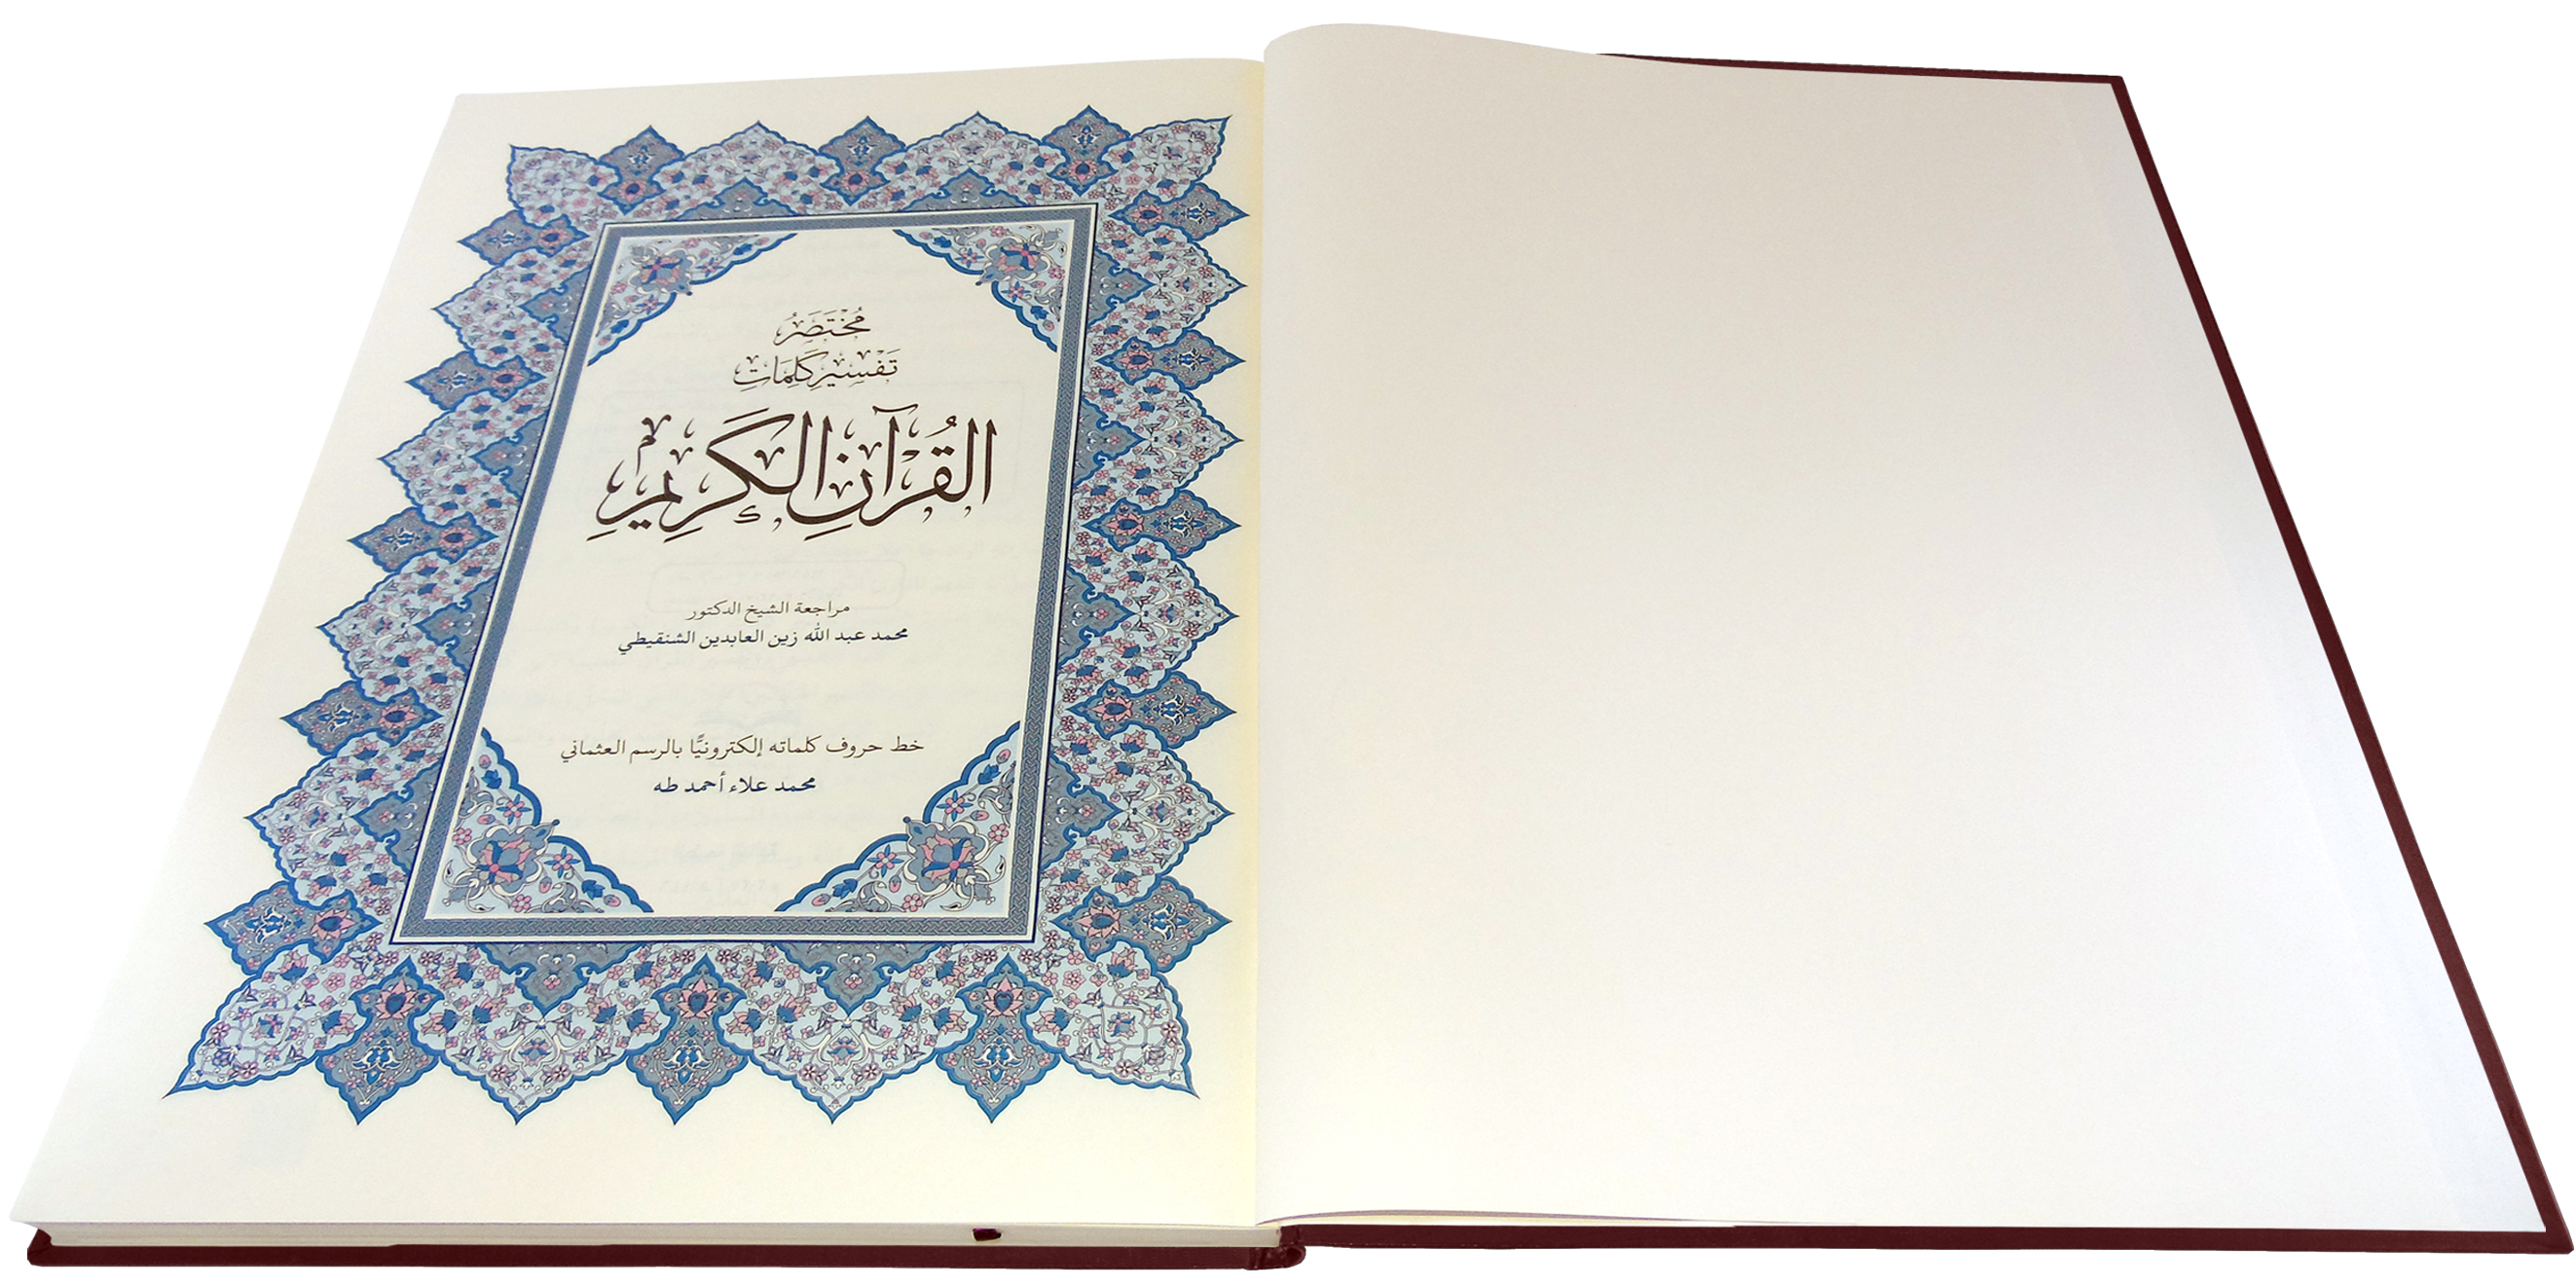 مُخْتَصَرُ
تَفْسِيرِ كَلِمَاتِ
القُرْآنِ الكَرِيمِ
مراجعة الشيخ الدكتور
محمد عبد الله زين العابدين الشنقيطي
خط حروف كلماته إلكترونيًّا بالرسم العثماني
محمد علاء أحمد طه